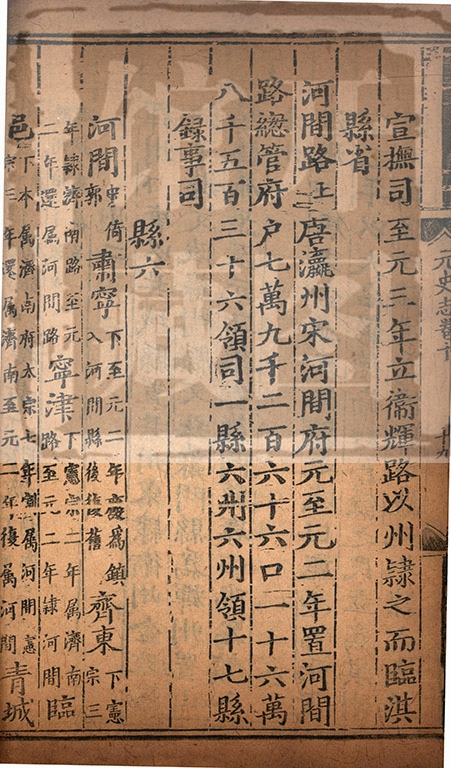 元史志卷十
十九
宣撫司至元三年立衛輝路以州隸之而臨淇
縣省
河間路上唐瀛州宋河間府元至元二年置河間
路總管府戶七萬九千二百六十六口一十六萬
八千五百三十六領司一縣六州六州領十七縣
録事司
縣六
河間中倚郭肅寧下至元二年廢爲鎮入河間縣後復舊齊東下憲宗三
年隸濟南路至元二年還屬河間路寧津下憲宗二年屬濟南路至元二年隸河間臨
邑下本属濟南府太宗七年割属河間憲宗三年還属濟南至元二年復属河間青城